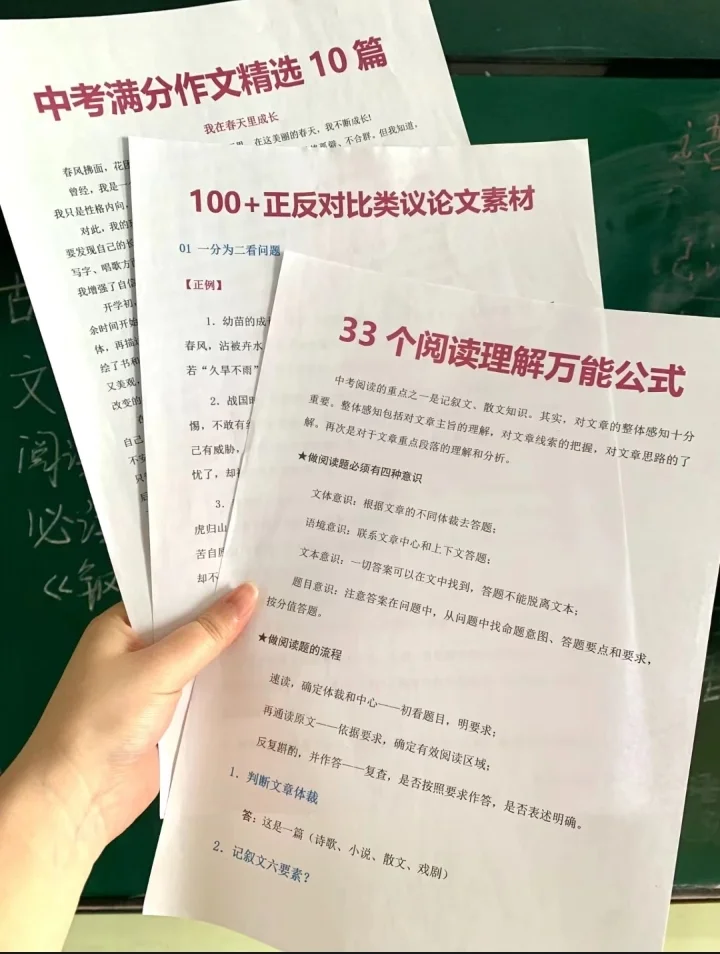 中考满分作文精选10篇
我在春天里成长
在这美丽的春天,我不断成长!
不合群。但我知道,
春风拂面,花团
曾经,我是一
我只是性格内向,
对此,我的
要发现自己的长
写字、唱歌方
我增强了自信
开学初,
余时间开始
体,再描
绘了书和
又美观,
改变的
自己
不安
100+正反对比类议论文素材
01 一分为二看问题
【正例】
1. 幼苗的成
春风,沾被卉水
若“久旱不雨”
2. 战国时
惕,不敢有
己有威胁,
忧了,却
3.
虎归山
苦自
却不
33个阅读理解万能公式
中考阅读的重点之一是记叙文、散文知识。其实,对文章的整体感知十分
重要。整体感知包括对文章主旨的理解,对文章线索的把握,对文章思路的了
解。再次是对于文章重点段落的理解和分析。
★做阅读题必须有四种意识
文体意识:根据文章的不同体裁去答题;
语境意识:联系文章中心和上下文答题;
文本意识:一切答案可以在文中找到,答题不能脱离文本;
题目意识:注意答案在问题中,从问题中找命题意图、答题要点和要求,
按分值答题。
★做阅读题的流程
速读,确定体裁和中心——初看题目,明要求;
再通读原文——依据要求,确定有效阅读区域;
反复斟酌,并作答——复查,是否按照要求作答,是否表述明确。
1. 判断文章体裁
答:这是一篇(诗歌、小说、散文、戏剧)
2. 记叙文六要素?
文
阅
必